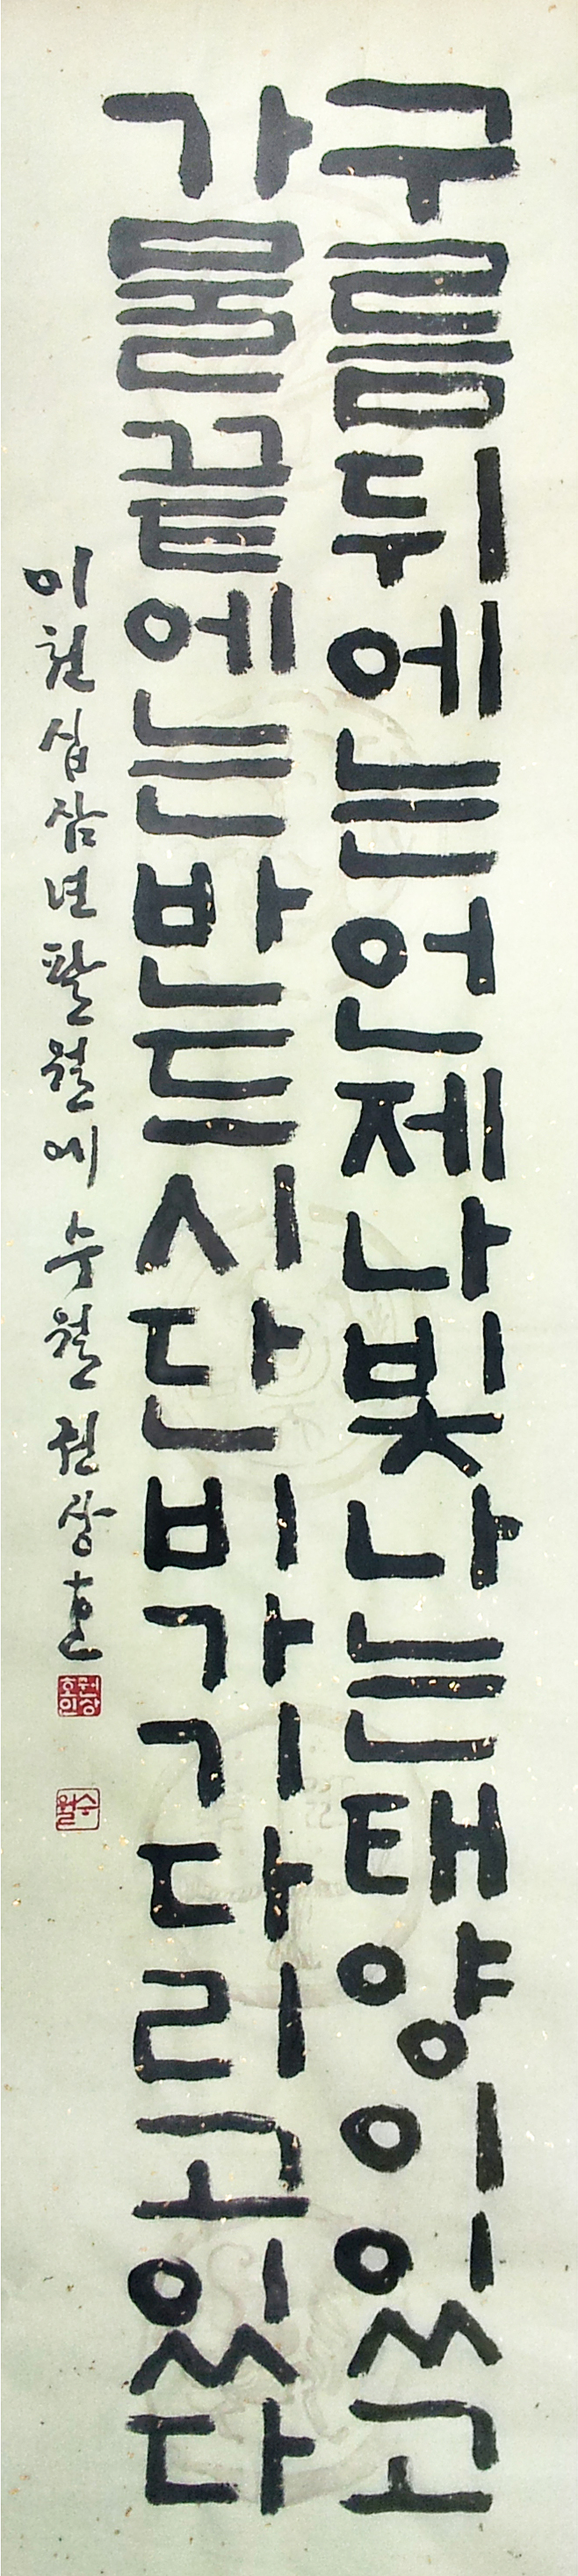 구름뒤에는언제나빛나는태양이있고
가물끝에는반드시단비가기다리고있다
이천십삼년팔월에 수월 권상호
권상호인
수월